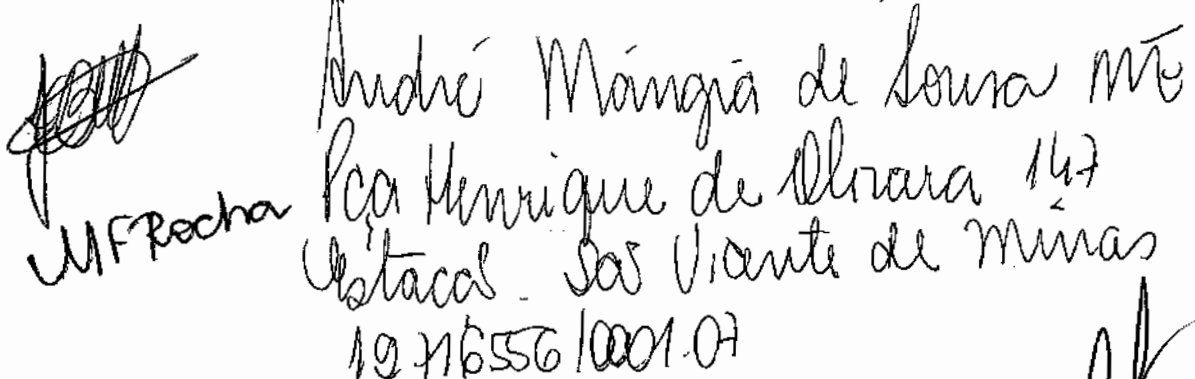 André Mángia de Sousa ME
Pça Henrique de Olivara 147
MFRocha
Estação - São Vicente de Minas
19.716556/0001.07